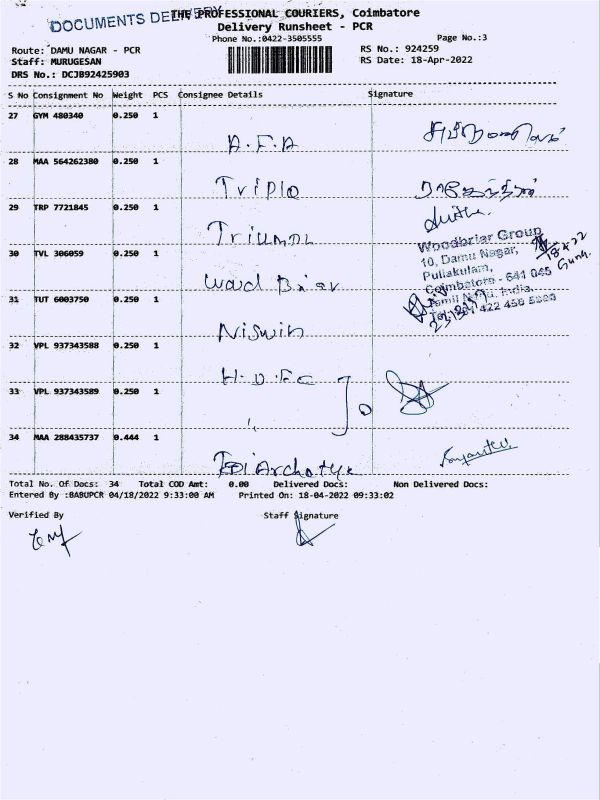 DOCUMENTS DELIVERY
THE PROFESSIONAL COURIERS, Coimbatore
Delivery Runsheet - PCR
Phone No.:0422-3505555
Page No.:3
Route: DAMU NAGAR - PCR
RS No.: 924259
Staff: MURUGESAN
RS Date: 18-Apr-2022
DRS No.: DCJB92425903
S No Consignment No Weight PCS Consignee Details Signature
27 GYM 480340 0.250 1
A.F.A
28 MAA 564262380 0.250 1
Triplo
29 TRP 7721845 0.250 1
30 TVL 306059 0.250 1
Woodbriar Group
10, Damu Nagar,
Puliakulam,
Coimbatore - 641 045
Tamil Nadu, India.
18.4.22
31 TUT 6003750 0.250 1
Niswin
32 VPL 937343588 0.250 1
H.D.F.C
33 VPL 937343589 0.250 1
34 MAA 288435737 0.444 1
Total No. Of Docs: 34 Total COD Amt: 0.00 Delivered Docs: Non Delivered Docs:
Entered By :BABUPCR 04/18/2022 9:33:00 AM Printed On: 18-04-2022 09:33:02
Verified By
Staff Signature